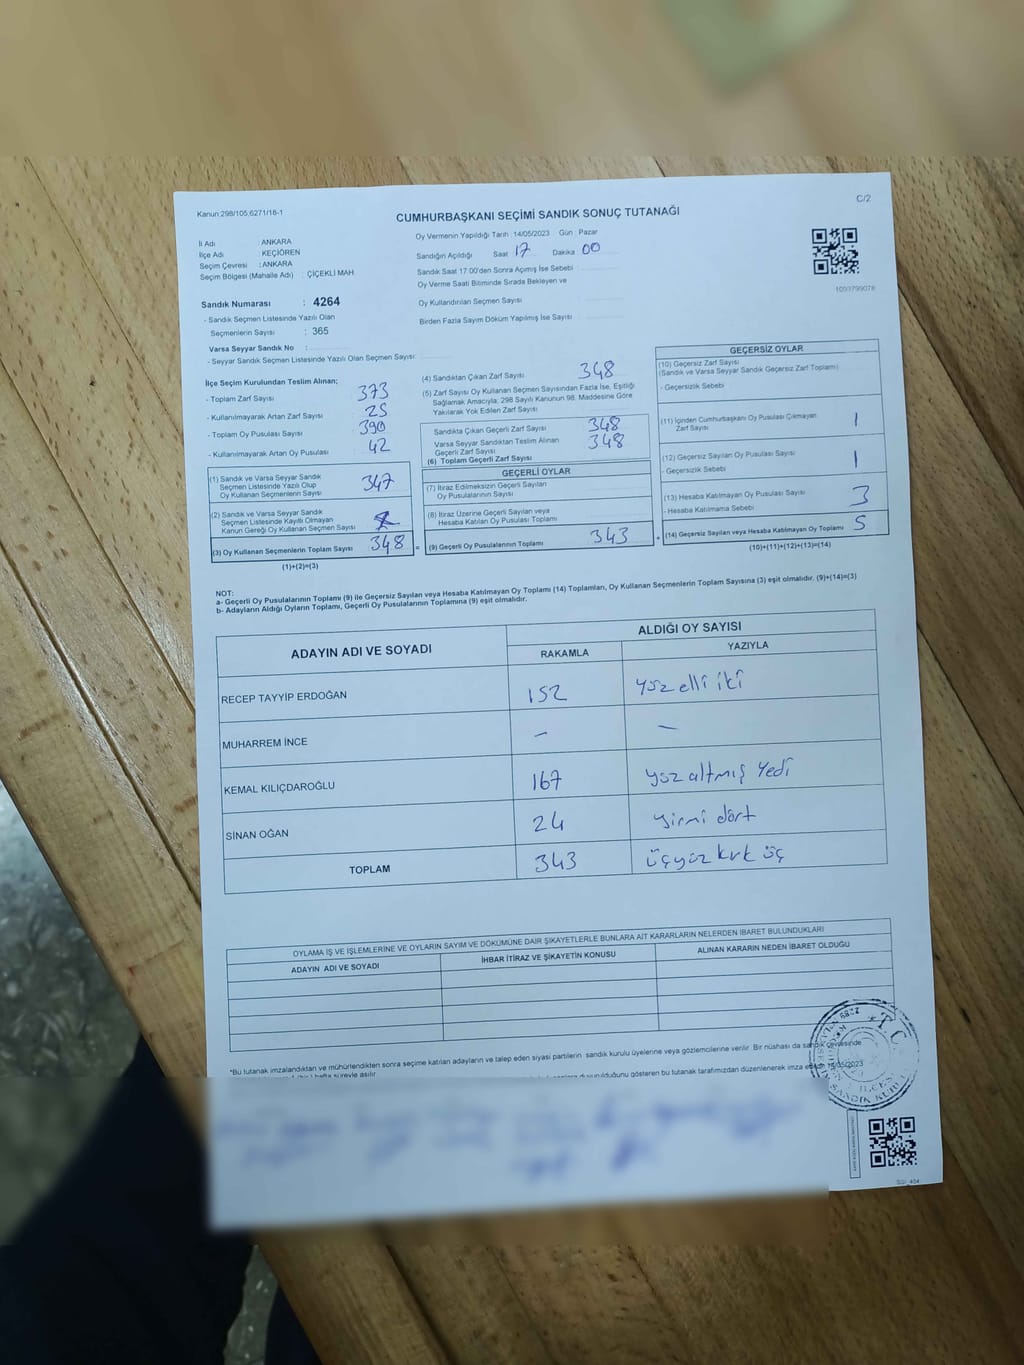 Kanun:298/105;6271/18-1
C/2
CUMHURBAŞKANI SEÇİMİ SANDIK SONUÇ TUTANAĞI
İl Adı : ANKARA
İlçe Adı : KEÇİÖREN
Seçim Çevresi : ANKARA
Seçim Bölgesi (Mahalle Adı) : ÇİÇEKLİ MAH
Sandık Numarası : 4264
- Sandık Seçmen Listesinde Yazılı Olan
Seçmenlerin Sayısı : 365
Varsa Seyyar Sandık No :
- Seyyar Sandık Seçmen Listesinde Yazılı Olan Seçmen Sayısı:
Oy Vermenin Yapıldığı Tarih :14/05/2023 Gün : Pazar
Sandığın Açıldığı Saat 17 Dakika 00
Sandık Saat 17:00'den Sonra Açımış İse Sebebi :
Oy Verme Saati Bitiminde Sırada Bekleyen ve
Oy Kullandırılan Seçmen Sayısı :
Birden Fazla Sayım Döküm Yapılmış İse Sayısı :
1093799078
İlçe Seçim Kurulundan Teslim Alınan;
- Toplam Zarf Sayısı : 373
- Kullanılmayarak Artan Zarf Sayısı : 25
- Toplam Oy Pusulası Sayısı : 390
- Kullanılmayarak Artan Oy Pusulası : 42
(1) Sandık ve Varsa Seyyar Sandık
Seçmen Listesinde Yazılı Olup
Oy Kullanan Seçmenlerin Sayısı 347
(2) Sandık ve Varsa Seyyar Sandık
Seçmen Listesinde Kayıtlı Olmayan
Kanun Gereği Oy Kullanan Seçmen Sayısı
(3) Oy Kullanan Seçmenlerin Toplam Sayısı 348
(1)+(2)=(3)
(4) Sandıktan Çıkan Zarf Sayısı 348
(5) Zarf Sayısı Oy Kullanan Seçmen Sayısından Fazla İse, Eşitliği
Sağlamak Amacıyla, 298 Sayılı Kanunun 98. Maddesine Göre
Yakılarak Yok Edilen Zarf Sayısı
Sandıkta Çıkan Geçerli Zarf Sayısı : 348
Varsa Seyyar Sandıktan Teslim Alınan
Geçerli Zarf Sayısı : 348
(6) Toplam Geçerli Zarf Sayısı
GEÇERLİ OYLAR
(7) İtiraz Edilmeksizin Geçerli Sayılan
Oy Pusulalarının Sayısı
(8) İtiraz Üzerine Geçerli Sayılan veya
Hesaba Katılan Oy Pusulası Toplamı
= (9) Geçerli Oy Pusulalarının Toplamı 343
GEÇERSİZ OYLAR
(10) Geçersiz Zarf Sayısı
(Sandık ve Varsa Seyyar Sandık Geçersiz Zarf Toplamı)
- Geçersizlik Sebebi
(11) İçinden Cumhurbaşkanı Oy Pusulası Çıkmayan
Zarf Sayısı 1
(12) Geçersiz Sayılan Oy Pusulası Sayısı 1
- Geçersizlik Sebebi
(13) Hesaba Katılmayan Oy Pusulası Sayısı 3
- Hesaba Katılmama Sebebi
+ (14) Geçersiz Sayılan veya Hesaba Katılmayan Oy Toplamı 5
(10)+(11)+(12)+(13)=(14)
NOT:
a- Geçerli Oy Pusulalarının Toplamı (9) ile Geçersiz Sayılan veya Hesaba Katılmayan Oy Toplamı (14) Toplamları, Oy Kullanan Seçmenlerin Toplam Sayısına (3) eşit olmalıdır. (9)+(14)=(3)
b- Adayların Aldığı Oyların Toplamı, Geçerli Oy Pusulalarının Toplamına (9) eşit olmalıdır.
ADAYIN ADI VE SOYADI ALDIĞI OY SAYISI
RAKAMLA YAZIYLA
RECEP TAYYİP ERDOĞAN 152 yüz elli iki
MUHARREM İNCE - -
KEMAL KILIÇDAROĞLU 167 yüz altmış Yedi
SİNAN OĞAN 24 yirmi dört
TOPLAM 343 üçyüz kırk üç
OYLAMA İŞ VE İŞLEMLERİNE VE OYLARIN SAYIM VE DÖKÜMÜNE DAİR ŞİKAYETLERLE BUNLARA AİT KARARLARIN NELERDEN İBARET BULUNDUKLARI
ADAYIN ADI VE SOYADI İHBAR İTİRAZ VE ŞİKAYETİN KONUSU ALINAN KARARIN NEDEN İBARET OLDUĞU
*Bu tutanak imzalandıktan ve mühürlendikten sonra seçime katılan adayların ve talep eden siyasi partilerin sandık kurulu üyelerine veya gözlemcilerine verilir. Bir nüshası da sandık çevresinde
hafta süreyle asılır.
duyurulduğunu gösteren bu tutanak tarafımızdan düzenlenerek imza edildi
T.C.
SANDIK KURULU